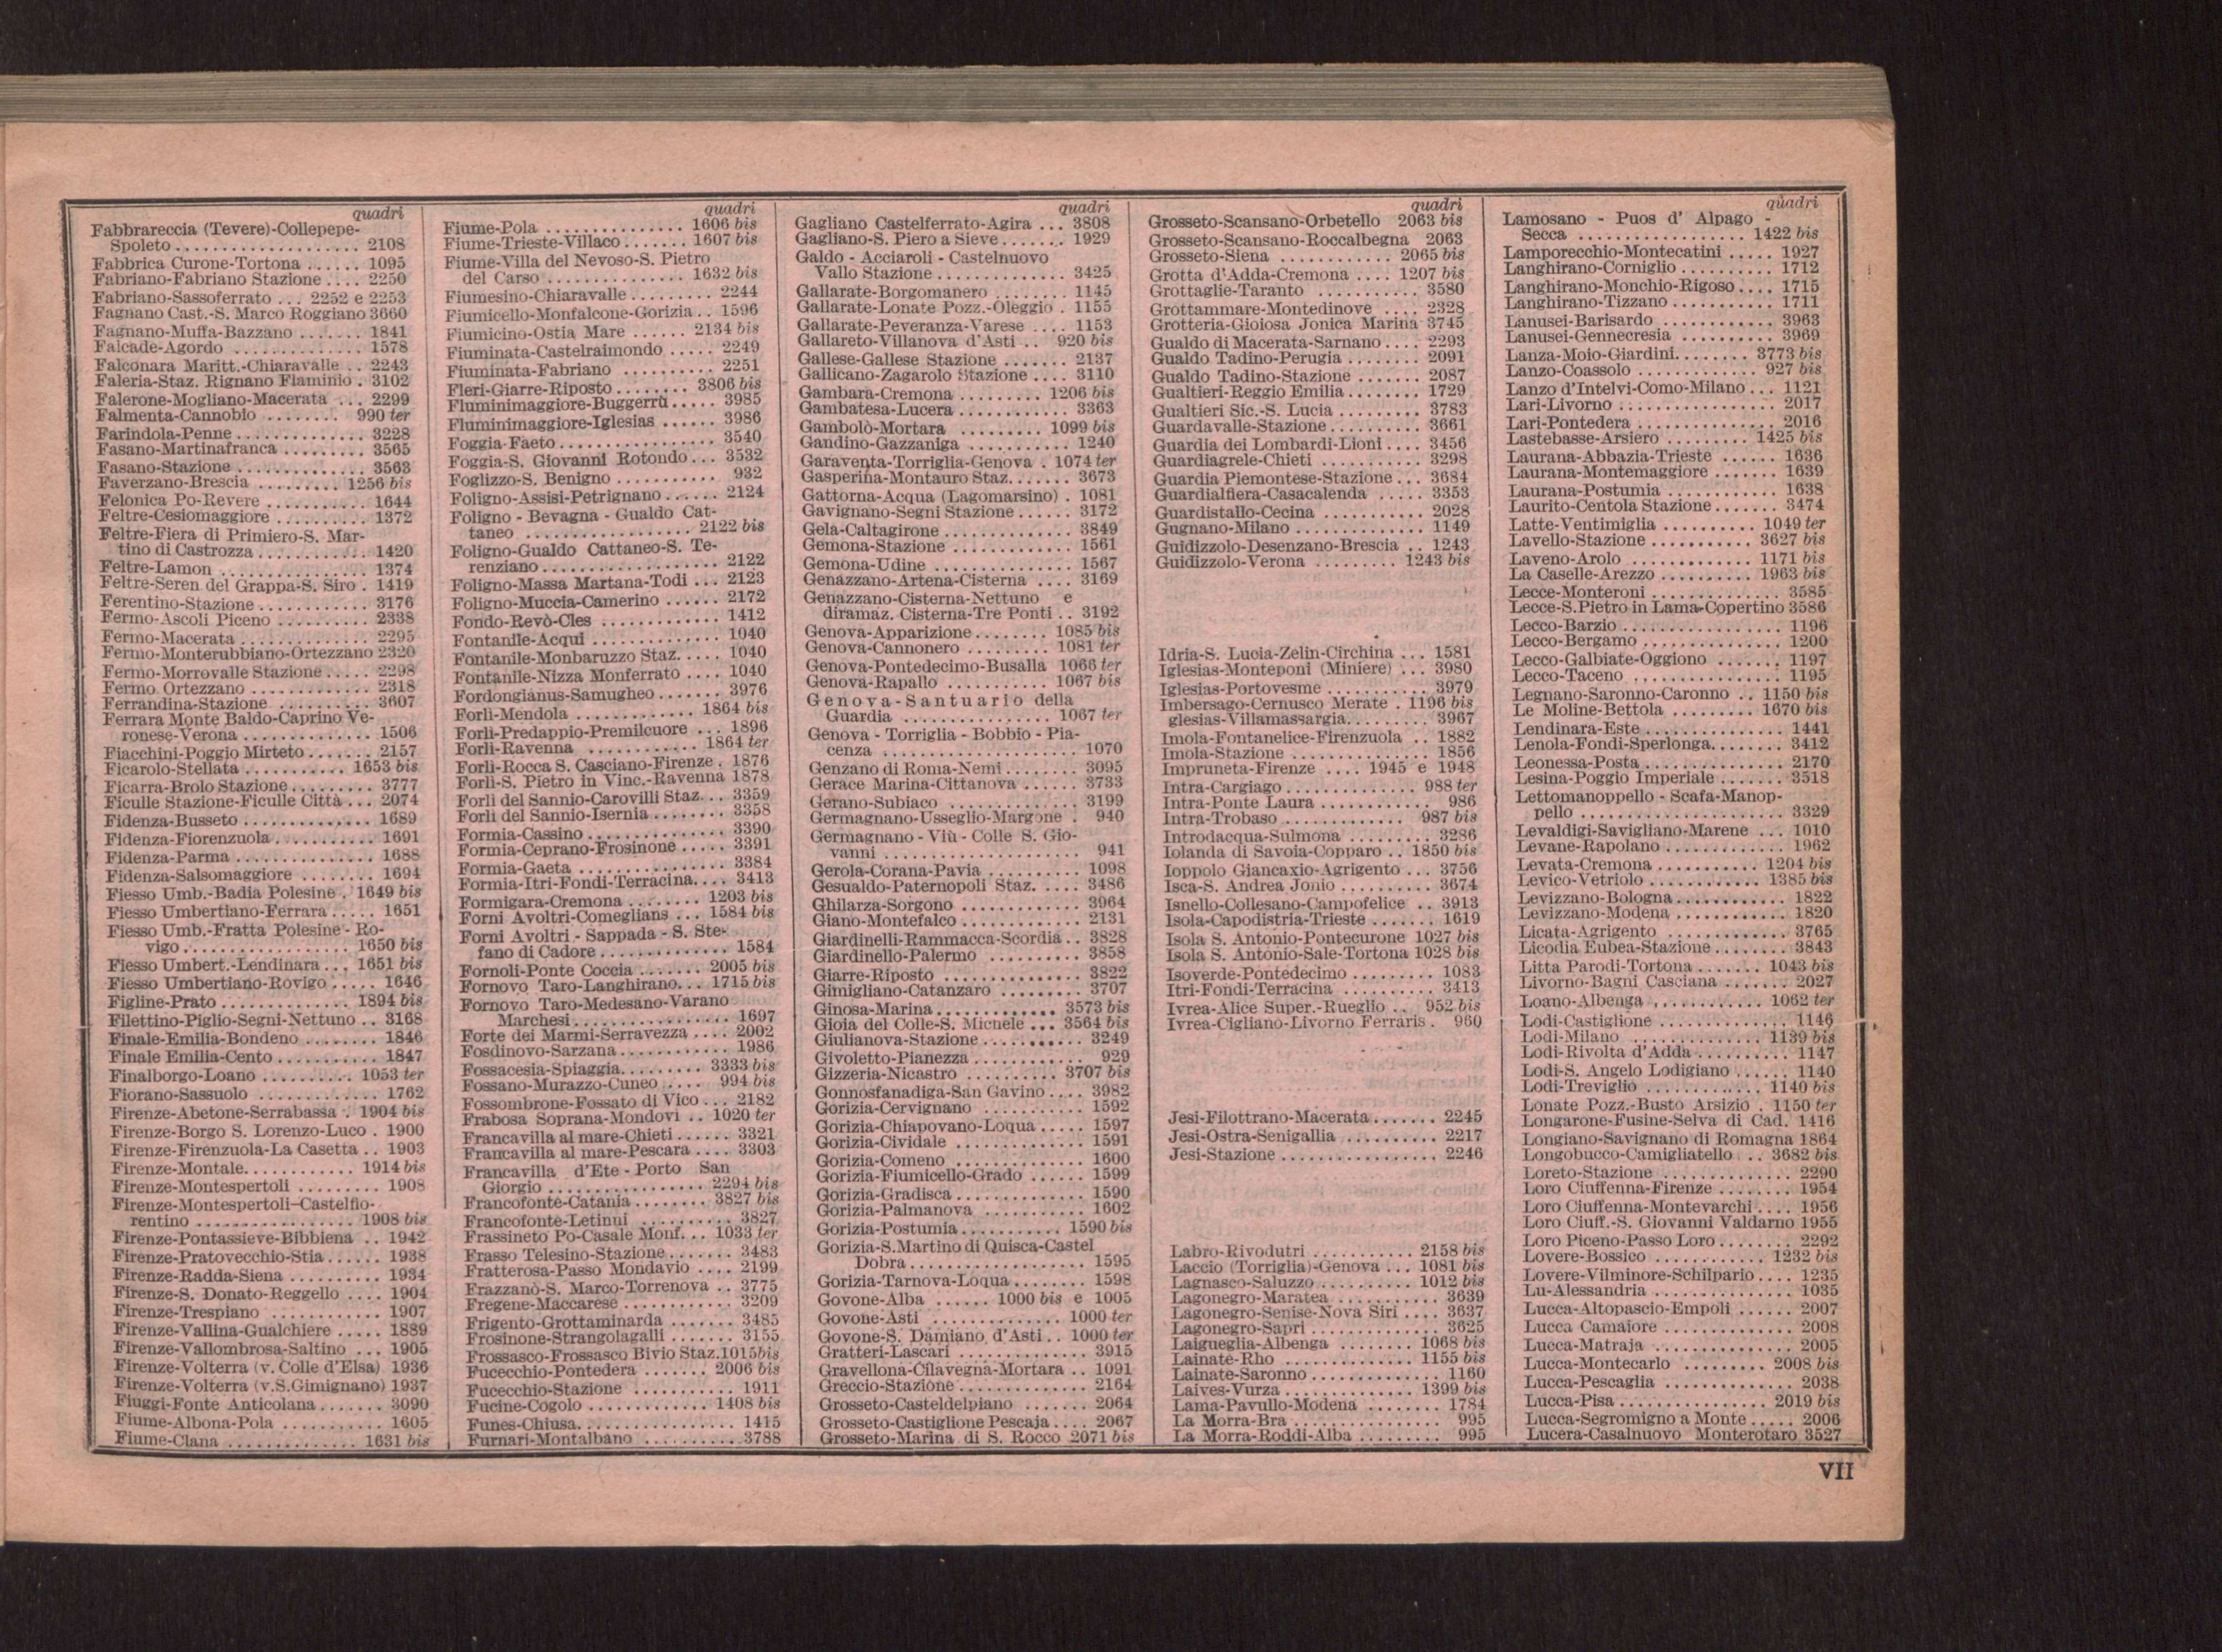 quadri
Fabbrareccia (Tevere)-Collepepe-
Spoleto .................. 2108
Fabbrica Curone-Tortona ...... 1095
Fabriano-Fabriano Stazione .... 2250
Fabriano-Sassoferrato ... 2252 e 2253
Fagnano Cast.-S. Marco Roggiano 3660
Fagnano-Muffa-Bazzano ....... 1841
Falcade-Agordo .............. 1578
Falconara Maritt.-Chiaravalle .. 2243
Faleria-Staz. Rignano Flaminio . 3102
Falerone-Mogliano-Macerata ... 2299
Falmenta-Cannobio ........ 990 ter
Farindola-Penne .............. 3228
Fasano-Martinafranca ......... 3565
Fasano-Stazione .............. 3563
Faverzano-Brescia ......... 1256 bis
Felonica Po-Revere ........... 1644
Feltre-Cesiomaggiore .......... 1372
Feltre-Fiera di Primiero-S. Mar-
tino di Castrozza ............ 1420
Feltre-Lamon ................ 1374
Feltre-Seren del Grappa-S. Siro . 1419
Ferentino-Stazione ............ 3176
Fermo-Ascoli Piceno .......... 2338
Fermo-Macerata .............. 2295
Fermo-Monterubbiano-Ortezzano 2320
Fermo-Morrovalle Stazione ..... 2298
Fermo Ortezzano ............. 2318
Ferrandina-Stazione .......... 3607
Ferrara Monte Baldo-Caprino Ve-
ronese-Verona .............. 1506
Fiacchini-Poggio Mirteto ....... 2157
Ficarolo-Stellata ........... 1653 bis
Ficarra-Brolo Stazione ......... 3777
Ficulle Stazione-Ficulle Città ... 2074
Fidenza-Busseto .............. 1689
Fidenza-Fiorenzuola .......... 1691
Fidenza-Parma ............... 1688
Fidenza-Salsomaggiore ........ 1694
Fiesso Umb.-Badia Polesine . 1649 bis
Fiesso Umbertiano-Ferrara ..... 1651
Fiesso Umb.-Fratta Polesine - Ro-
vigo .................. 1650 bis
Fiesso Umbert.-Lendinara ... 1651 bis
Fiesso Umbertiano-Rovigo ..... 1646
Figline-Prato .............. 1894 bis
Filettino-Piglio-Segni-Nettuno .. 3168
Finale-Emilia-Bondeno ........ 1846
Finale Emilia-Cento ........... 1847
Finalborgo-Loano .......... 1053 ter
Fiorano-Sassuolo ............. 1762
Firenze-Abetone-Serrabassa . 1904 bis
Firenze-Borgo S. Lorenzo-Luco . 1900
Firenze-Firenzuola-La Casetta .. 1903
Firenze-Montale............ 1914 bis
Firenze-Montespertoli ......... 1908
Firenze-Montespertoli-Castelfio-
rentino ................. 1908 bis
Firenze-Pontassieve-Bibbiena .. 1942
Firenze-Pratovecchio-Stia ...... 1938
Firenze-Radda-Siena .......... 1934
Firenze-S. Donato-Reggello .... 1904
Firenze-Trespiano ............ 1907
Firenze-Vallina-Gualchiere ..... 1889
Firenze-Vallombrosa-Saltino ... 1905
Firenze-Volterra (v. Colle d'Elsa) 1936
Firenze-Volterra (v.S.Gimignano) 1937
Fiuggi-Fonte Anticolana ....... 3090
Fiume-Albona-Pola ........... 1605
Fiume-Clana .............. 1631 bis
quadri
Fiume-Pola ............... 1606 bis
Fiume-Trieste-Villaco ....... 1607 bis
Fiume-Villa del Nevoso-S. Pietro
del Carso ............... 1632 bis
Fiumesino-Chiaravalle ......... 2244
Fiumicello-Monfalcone-Gorizia .. 1596
Fiumicino-Ostia Mare ...... 2134 bis
Fiuminata-Castelraimondo ..... 2249
Fiuminata-Fabriano .......... 2251
Fleri-Giarre-Riposto ........ 3806 bis
Fluminimaggiore-Buggerrù ..... 3985
Fluminimaggiore-Iglesias ...... 3986
Foggia-Faeto ................. 3540
Foggia-S. Giovanni Rotondo ... 3532
Foglizzo-S. Benigno ........... 932
Foligno-Assisi-Petrignano ...... 2124
Foligno - Bevagna - Gualdo Cat-
taneo .................. 2122 bis
Foligno-Gualdo Cattaneo-S. Te-
renziano .................. 2122
Foligno-Massa Martana-Todi ... 2123
Foligno-Muccia-Camerino ...... 2172
Fondo-Revò-Cles ............. 1412
Fontanile-Acqui .............. 1040
Fontanile-Monbaruzzo Staz. .... 1040
Fontanile-Nizza Monferrato .... 1040
Fordongianus-Samugheo ....... 3976
Forlì-Mendola ............. 1864 bis
Forlì-Predappio-Premilcuore ... 1896
Forlì-Ravenna ............ 1864 ter
Forlì-Rocca S. Casciano-Firenze . 1876
Forlì-S. Pietro in Vinc.-Ravenna 1878
Forlì del Sannio-Carovilli Staz... 3359
Forlì del Sannio-Isernia ........ 3358
Formia-Cassino ............... 3390
Formia-Ceprano-Frosinone ..... 3391
Formia-Gaeta ................ 3384
Formia-Itri-Fondi-Terracina.... 3413
Formigara-Cremona ........ 1203 bis
Forni Avoltri-Comeglians ... 1584 bis
Forni Avoltri - Sappada - S. Ste-
fano di Cadore ............. 1584
Fornoli-Ponte Coccia ....... 2005 bis
Fornovo Taro-Langhirano... 1715 bis
Fornovo Taro-Medesano-Varano
Marchesi.................. 1697
Forte dei Marmi-Serravezza .... 2002
Fosdinovo-Sarzana ............ 1986
Fossacesia-Spiaggia......... 3333 bis
Fossano-Murazzo-Cuneo .... 994 bis
Fossombrone-Fossato di Vico ... 2182
Frabosa Soprana-Mondovì .. 1020 ter
Francavilla al mare-Chieti ...... 3321
Francavilla al mare-Pescara .... 3303
Francavilla d'Ete - Porto San
Giorgio ................. 2294 bis
Francofonte-Catania ........ 3827 bis
Francofonte-Letinui .......... 3827
Frassineto Po-Casale Monf. .. 1033 ter
Frasso Telesino-Stazione ....... 3483
Fratterosa-Passo Mondavio .... 2199
Frazzanò-S. Marco-Torrenova .. 3775
Fregene-Maccarese ............ 3209
Frigento-Grottaminarda ....... 3485
Frosinone-Strangolagalli ....... 3155
Frossasco-Frossasco Bivio Staz.1015bis
Fucecchio-Pontedera ....... 2006 bis
Fucecchio-Stazione ........... 1911
Fucine-Cogolo ............. 1408 bis
Funes-Chiusa................. 1415
Furnari-Montalbano .......... 3788
quadri
Gagliano Castelferrato-Agira ... 3808
Gagliano-S. Piero a Sieve ....... 1929
Galdo - Acciaroli - Castelnuovo
Vallo Stazione .............. 3425
Gallarate-Borgomanero ........ 1145
Gallarate-Lonate Pozz.-Oleggio . 1155
Gallarate-Peveranza-Varese .... 1153
Gallareto-Villanova d'Asti .. 920 bis
Gallese-Gallese Stazione ....... 2137
Gallicano-Zagarolo Stazione .... 3110
Gambara-Cremona ......... 1206 bis
Gambatesa-Lucera ............ 3363
Gambolò-Mortara ......... 1099 bis
Gandino-Gazzaniga ........... 1240
Garaventa-Torriglia-Genova . 1074 ter
Gasperina-Montauro Staz....... 3673
Gattorna-Acqua (Lagomarsino) . 1081
Gavignano-Segni Stazione ...... 3172
Gela-Caltagirone .............. 3849
Gemona-Stazione ............. 1561
Gemona-Udine ............... 1567
Genazzano-Artena-Cisterna .... 3169
Genazzano-Cisterna-Nettuno e
diramaz. Cisterna-Tre Ponti .. 3192
Genova-Apparizione ........ 1085 bis
Genova-Cannonero ......... 1081 ter
Genova-Pontedecimo-Busalla 1066 ter
Genova-Rapallo ........... 1067 bis
Genova-Santuario della
Guardia ................ 1067 ter
Genova - Torriglia - Bobbio - Pia-
cenza ..................... 1070
Genzano di Roma-Nemi ........ 3095
Gerace Marina-Cittanova ...... 3733
Gerano-Subiaco .............. 3199
Germagnano-Usseglio-Margone . 940
Germagnano - Viù - Colle S. Gio-
vanni ..................... 941
Gerola-Corana-Pavia .......... 1098
Gesualdo-Paternopoli Staz. .... 3486
Ghilarza-Sorgono ............. 3964
Giano-Montefalco ............. 2131
Giardinelli-Rammacca-Scordia .. 3828
Giardinello-Palermo .......... 3858
Giarre-Riposto ............... 3822
Gimigliano-Catanzaro ......... 3707
Ginosa-Marina ............. 3573 bis
Gioia del Colle-S. Michele ... 3564 bis
Giulianova-Stazione ........... 3249
Givoletto-Pianezza ............ 929
Gizzeria-Nicastro .......... 3707 bis
Gonnosfanadiga-San Gavino .... 3982
Gorizia-Cervignano ........... 1592
Gorizia-Chiapovano-Loqua ..... 1597
Gorizia-Cividale .............. 1591
Gorizia-Comeno .............. 1600
Gorizia-Fiumicello-Grado ...... 1599
Gorizia-Gradisca .............. 1590
Gorizia-Palmanova ........... 1602
Gorizia-Postumia ........... 1590 bis
Gorizia-S.Martino di Quisca-Castel
Dobra ..................... 1595
Gorizia-Tarnova-Loqua ........ 1598
Govone-Alba ...... 1000 bis e 1005
Govone-Asti .............. 1000 ter
Govone-S. Damiano d'Asti .. 1000 ter
Gratteri-Lascari .............. 3915
Gravellona-Cilavegna-Mortara .. 1091
Greccio-Stazione .............. 2164
Grosseto-Casteldelpiano ....... 2064
Grosseto-Castiglione Pescaja .... 2067
Grosseto-Marina di S. Rocco 2071 bis
quadri
Grosseto-Scansano-Orbetello 2063 bis
Grosseto-Scansano-Roccalbegna 2063
Grosseto-Siena ............ 2065 bis
Grotta d'Adda-Cremona .... 1207 bis
Grottaglie-Taranto ........... 3580
Grottammare-Montedinove .... 2328
Grotteria-Gioiosa Jonica Marina 3745
Gualdo di Macerata-Sarnano .... 2293
Gualdo Tadino-Perugia ........ 2091
Gualdo Tadino-Stazione ....... 2087
Gualtieri-Reggio Emilia ........ 1729
Gualtieri Sic.-S. Lucia ......... 3783
Guardavalle-Stazione .......... 3661
Guardia dei Lombardi-Lioni .... 3456
Guardiagrele-Chieti ........... 3298
Guardia Piemontese-Stazione ... 3684
Guardialfiera-Casacalenda ..... 3353
Guardistallo-Cecina ........... 2028
Gugnano-Milano .............. 1149
Guidizzolo-Desenzano-Brescia .. 1243
Guidizzolo-Verona ......... 1243 bis
Idria-S. Lucia-Zelin-Circhina ... 1581
Iglesias-Monteponi (Miniere) ... 3980
Iglesias-Portovesme ........... 3979
Imbersago-Cernusco Merate . 1196 bis
glesias-Villamassargia......... 3967
Imola-Fontanelice-Firenzuola .. 1882
Imola-Stazione ............... 1856
Impruneta-Firenze .... 1945 e 1948
Intra-Cargiago ............. 988 ter
Intra-Ponte Laura ............ 986
Intra-Trobaso ............. 987 bis
Introdacqua-Sulmona ......... 3286
Iolanda di Savoia-Copparo .. 1850 bis
Ioppolo Giancaxio-Agrigento ... 3756
Isca-S. Andrea Jonio .......... 3674
Isnello-Collesano-Campofelice .. 3913
Isola-Capodistria-Trieste ....... 1619
Isola S. Antonio-Pontecurone 1027 bis
Isola S. Antonio-Sale-Tortona 1028 bis
Isoverde-Pontedecimo ......... 1083
Itri-Fondi-Terracina .......... 3413
Ivrea-Alice Super.-Rueglio .. 952 bis
Ivrea-Cigliano-Livorno Ferraris . 960
Jesi-Filottrano-Macerata ....... 2245
Jesi-Ostra-Senigallia .......... 2217
Jesi-Stazione ................. 2246
Labro-Rivodutri ........... 2158 bis
Laccio (Torriglia)-Genova ... 1081 bis
Lagnasco-Saluzzo .......... 1012 bis
Lagonegro-Maratea ........... 3639
Lagonegro-Senise-Nova Siri .... 3637
Lagonegro-Sapri .............. 3625
Laigueglia-Albenga ........ 1068 bis
Lainate-Rho .............. 1155 bis
Lainate-Saronno .............. 1160
Laives-Vurza .............. 1399 bis
Lama-Pavullo-Modena ........ 1784
La Morra-Bra ................ 995
La Morra-Roddi-Alba ......... 995
quadri
Lamosano - Puos d' Alpago -
Secca .................. 1422 bis
Lamporecchio-Montecatini ..... 1927
Langhirano-Corniglio .......... 1712
Langhirano-Monchio-Rigoso .... 1715
Langhirano-Tizzano ........... 1711
Lanusei-Barisardo ............ 3963
Lanusei-Gennecresia .......... 3969
Lanza-Moio-Giardini........ 3773 bis
Lanzo-Coassolo ............. 927 bis
Lanzo d'Intelvi-Como-Milano ... 1121
Lari-Livorno ................. 2017
Lari-Pontedera ............... 2016
Lastebasse-Arsiero ......... 1425 bis
Laurana-Abbazia-Trieste ...... 1636
Laurana-Montemaggiore ....... 1639
Laurana-Postumia ............ 1638
Laurito-Centola Stazione ....... 3474
Latte-Ventimiglia .......... 1049 ter
Lavello-Stazione ........... 3627 bis
Laveno-Arolo ............. 1171 bis
La Caselle-Arezzo .......... 1963 bis
Lecce-Monteroni .............. 3585
Lecce-S.Pietro in Lama-Copertino 3586
Lecco-Barzio ................. 1196
Lecco-Bergamo ............... 1200
Lecco-Galbiate-Oggiono ....... 1197
Lecco-Taceno ................ 1195
Legnano-Saronno-Caronno .. 1150 bis
Le Moline-Bettola ......... 1670 bis
Lendinara-Este ............... 1441
Lenola-Fondi-Sperlonga........ 3412
Leonessa-Posta ............... 2170
Lesina-Poggio Imperiale ....... 3518
Lettomanoppello - Scafa-Manop-
pello ..................... 3329
Levaldigi-Savigliano-Marene ... 1010
Levane-Rapolano ............. 1962
Levata-Cremona ........... 1204 bis
Levico-Vetriolo ............ 1385 bis
Levizzano-Bologna ............ 1822
Levizzano-Modena ............ 1820
Licata-Agrigento ............. 3765
Licodia Eubea-Stazione ........ 3843
Litta Parodi-Tortona ....... 1043 bis
Livorno-Bagni Casciana ....... 2027
Loano-Albenga ............ 1062 ter
Lodi-Castiglione .............. 1146
Lodi-Milano .............. 1139 bis
Lodi-Rivolta d'Adda .......... 1147
Lodi-S. Angelo Lodigiano ...... 1140
Lodi-Treviglio ............ 1140 bis
Lonate Pozz.-Busto Arsizio . 1150 ter
Longarone-Fusine-Selva di Cad. 1416
Longiano-Savignano di Romagna 1864
Longobucco-Camigliatello .. 3682 bis
Loreto-Stazione .............. 2290
Loro Ciuffenna-Firenze ........ 1954
Loro Ciuffenna-Montevarchi .... 1956
Loro Ciuff.-S. Giovanni Valdarno 1955
Loro Piceno-Passo Loro ........ 2292
Lovere-Bossico ............ 1232 bis
Lovere-Vilminore-Schilpario .... 1235
Lu-Alessandria ............... 1035
Lucca-Altopascio-Empoli ...... 2007
Lucca Camaiore .............. 2008
Lucca-Matraja ............... 2005
Lucca-Montecarlo ......... 2008 bis
Lucca-Pescaglia .............. 2038
Lucca-Pisa ................ 2019 bis
Lucca-Segromigno a Monte ..... 2006
Lucera-Casalnuovo Monterotaro 3527
VII